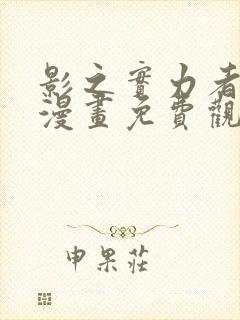 影之實力者
漫畫免費觀
申果莊